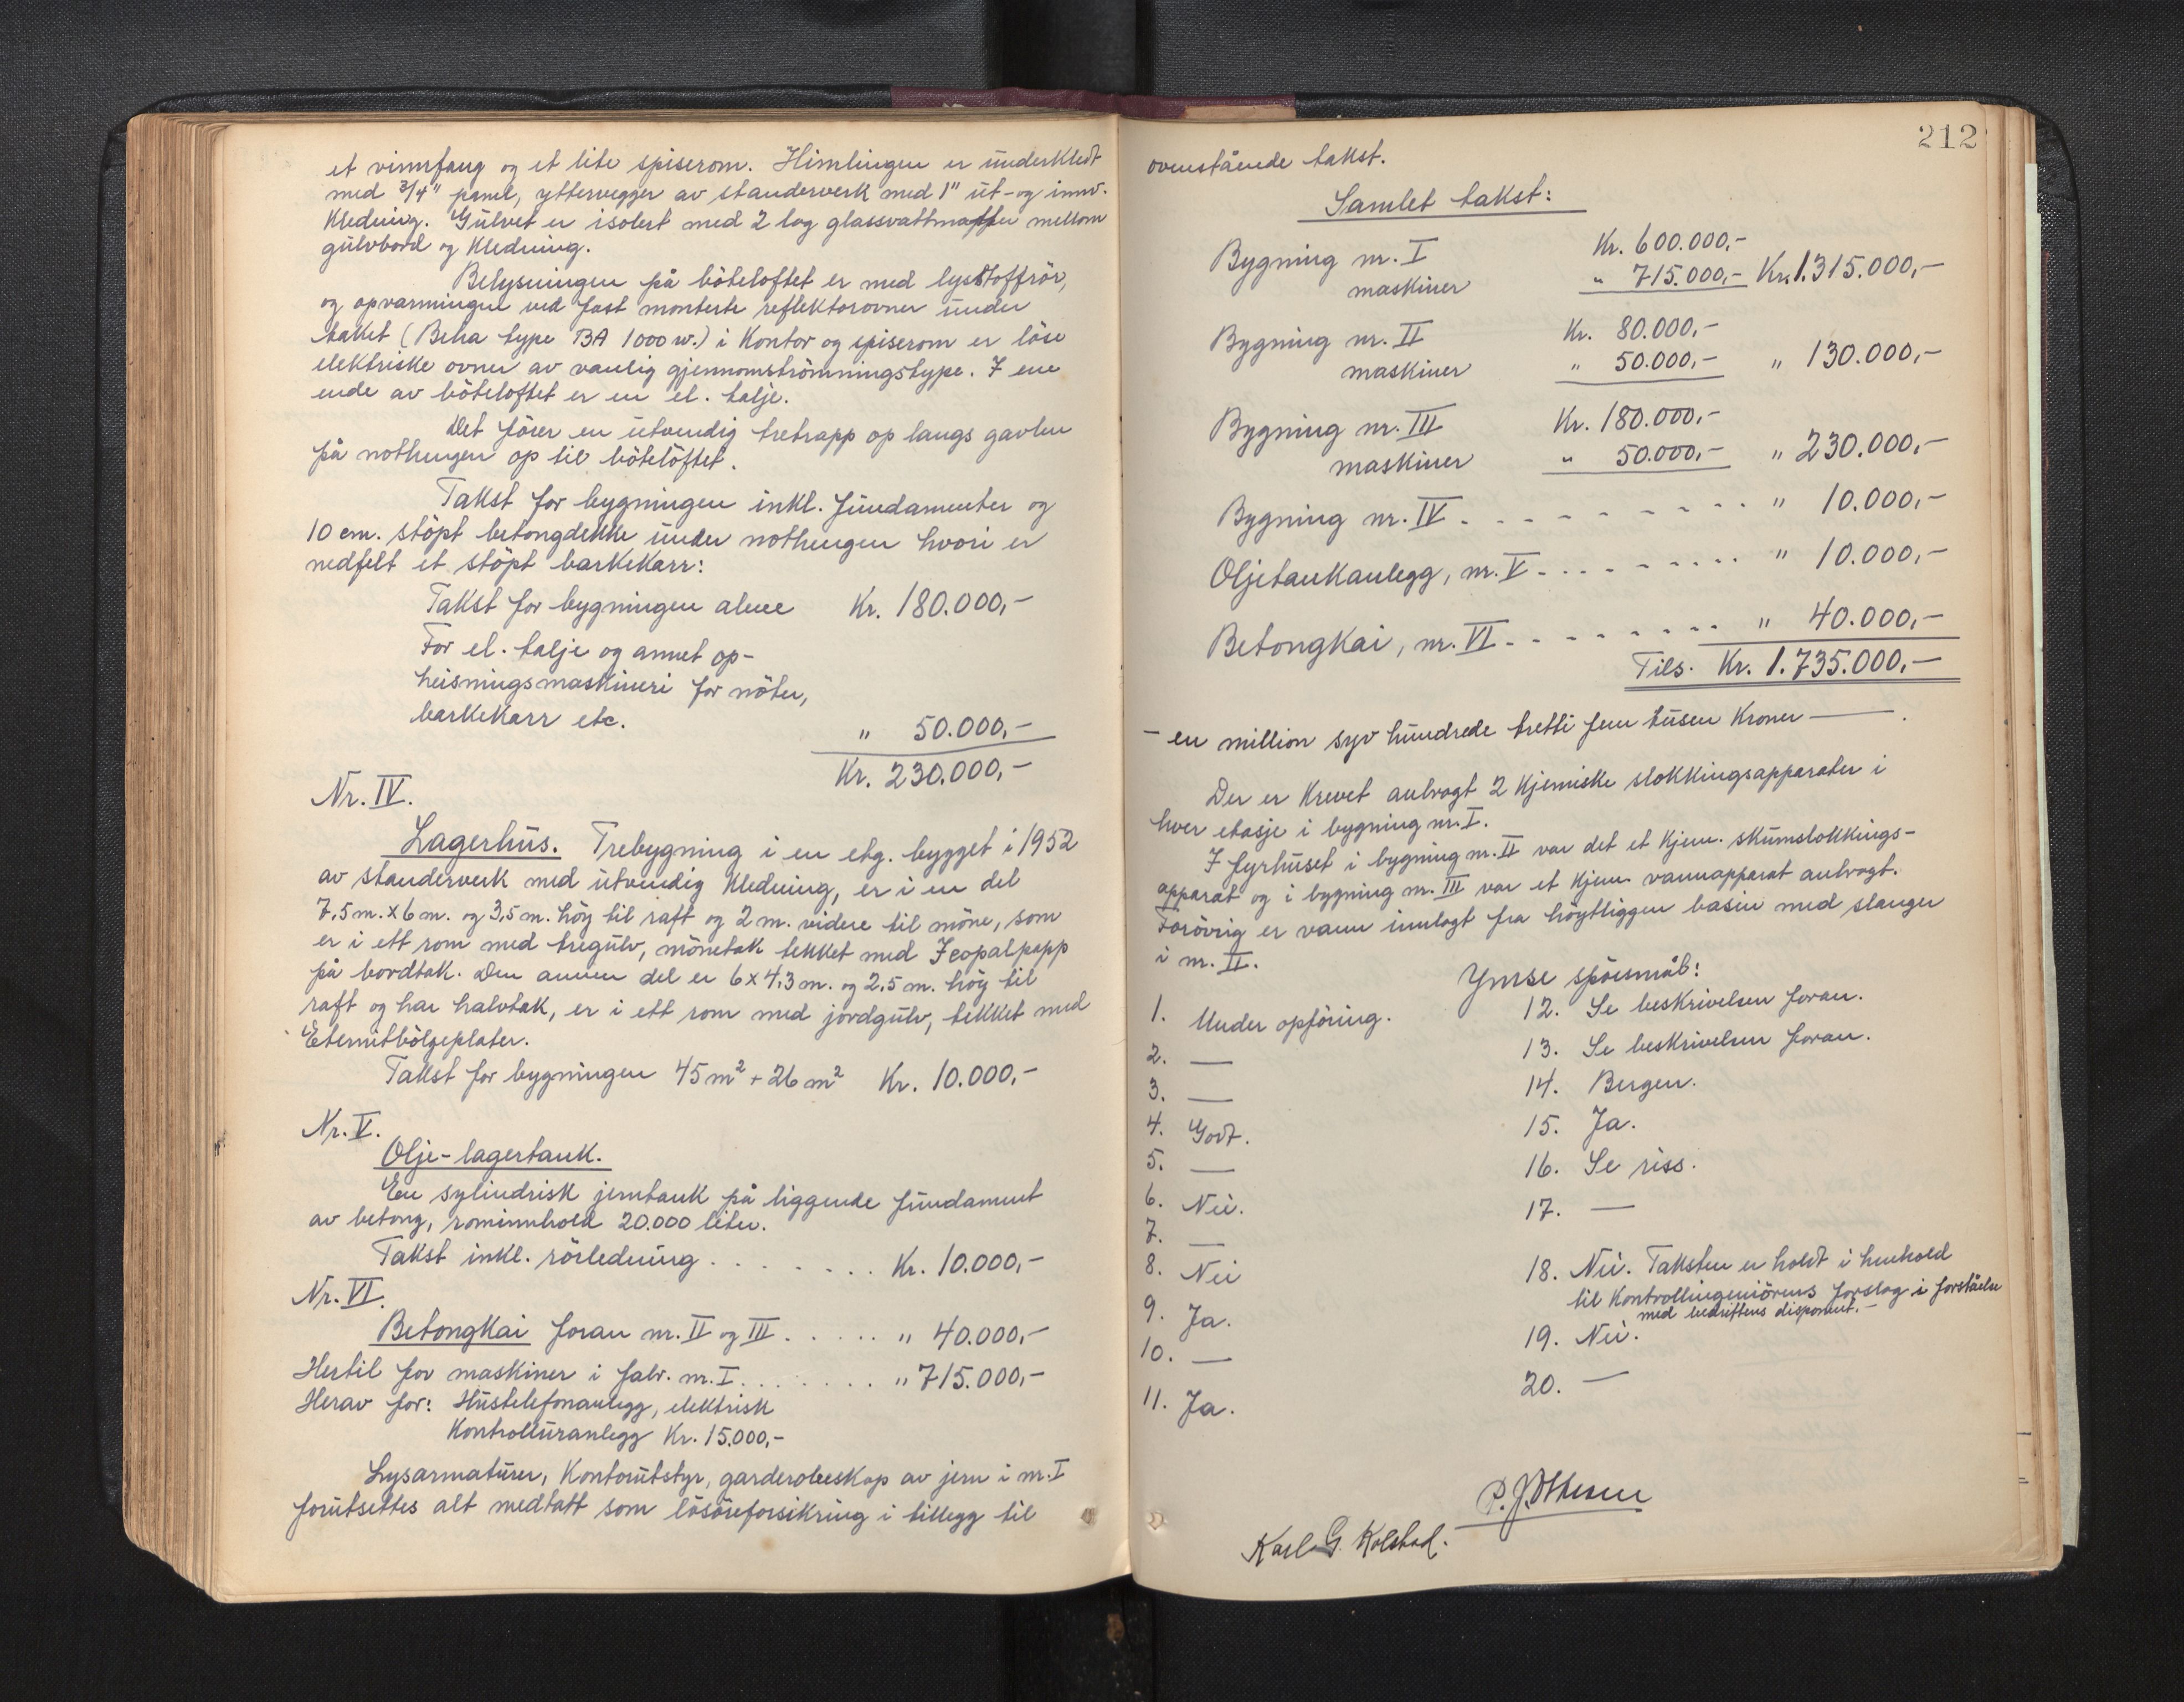 et vinnfang og et lite spiserom. Himlingen er underkledt
med 3/4" panel, yttervegger av standerverk med 1" ut- og innv.
kledning. Gulvet er isolert med 2 lag glassvattmatter mellom
gulvbord og kledning.
Belysningen på böteloftet er med lysstoffrör,
og opvarmingen ved fast monterte reflektorovner under
taket (Beha type BA 1000 w.) i kontor og spiserom er löse
elektriske ovner av vanlig gjennomströmningstype. I ene
ende av böteloftet er en el. talje.
Det förer en utvendig tretrapp op langs gavlen
på nothengen op til böteloftet.
Takst for bygningen inkl. fundamenter og
10 cm. stöpt betongdekke under nothengen hvori er
nedfelt et stöpt barkekarr:
Takst for bygningen alene Kr. 180.000,-
For el. talje og annet op-
heisningsmaskineri for nöter,
barkekarr etc. " 50.000,-
Kr. 230.000,-
Nr. IV.
Lagerhus. Trebygning i en etg. bygget i 1952
av standerverk med utvendig kledning, er i en del
7,5 m. x 6 m. og 3,5 m. höy til raft og 2 m. videre til möne, som
er i ett rom med tregulv, mönetak tekket med Icopalpapp
på bordtak. Den annen del er 6 x 4,3 m. og 2,5 m. höy til
raft og har halvtak, er i ett rom med jordgulv, tekket med
Eternitbölgeplater.
Takst for bygningen 45 m² + 26 m² Kr. 10.000,-
Nr. V.
Olje-lagertank.
En sylindrisk jerntank på liggende fundament
av betong, rominnhold 20.000 liter.
Takst inkl. rörledning . . . . . . . Kr. 10.000,-
Nr. VI.
Betongkai foran nr. II og III . . . . . " 40.000,-
Hertil for maskiner i fabr. nr. I . . . . . . . " 715.000,-
Herav for: Hustelefonanlegg, elektrisk
Kontrolluranlegg Kr. 15.000,-
Lysarmaturer, Kontorutstyr, garderobeskap av jern i nr. I
forutsettes alt medtatt som lösöreforsikring i tillegg til
212
ovenstående takst.
Samlet takst:
Bygning nr. I Kr. 600.000,-
maskiner " 715.000,- Kr. 1.315.000,-
Bygning nr. II Kr. 80.000,-
maskiner " 50.000,- " 130.000,-
Bygning nr. III Kr. 180.000,-
maskiner " 50.000,- " 230.000,-
Bygning nr. IV - - - - - - - - - - " 10.000,-
Oljetankanlegg, nr. V - - - - - - - - - " 10.000,-
Betongkai, nr. VI - - - - - - - - - " 40.000,-
Tils. Kr. 1.735.000,-
- en million syv hundrede tretti fem tusen Kroner —.
Der er krevet anbragt 2 kjemiske slokkingsapparater i
hver etasje i bygning nr. I.
I fyrhuset i bygning nr. II var det et kjem. skumslokkings-
apparat og i bygning nr. III var et kjem. vannapparat anbragt.
Forövrig er vann innlagt fra höytliggen basin med slanger
i nr. II.
Ymse spörsmål:
1. Under opföring.
2. —
3. —
4. Godt.
5. —
6. Nei.
7. —
8. Nei
9. Ja.
10. —
11. Ja.
12. Se beskrivelsen foran.
13. Se beskrivelsen foran.
14. Bergen.
15. Ja.
16. Se riss.
17. —
18. Nei. Taksten er holdt i henhold
til Kontrollingeniörens forslag i forståelse
med bedriftens disponent. -
19. Nei.
20. —
P. J. Ottesen
Karl G. Kolstad.